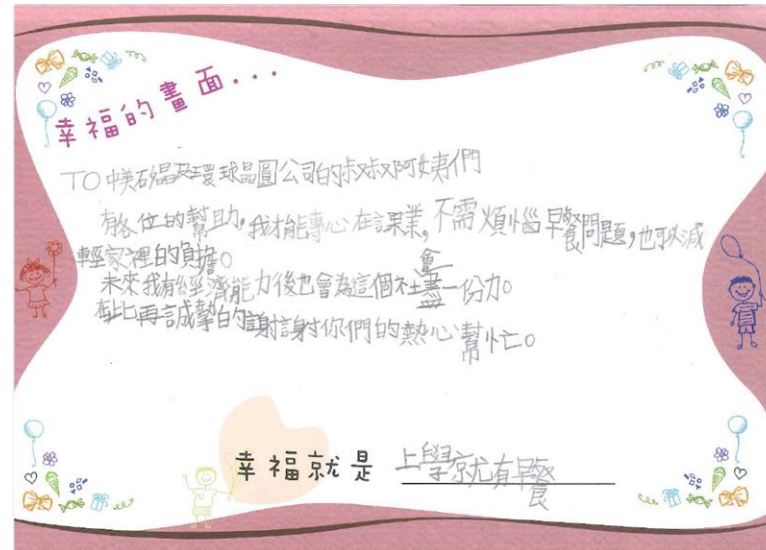 幸福的畫面...
TO中美矽晶及環球晶圓公司的叔叔阿姨們
有各位的幫助,我才能專心在課業,不需煩惱早餐問題,也可以減
輕家裡的負擔。
未來我有經濟能力後也會為這個社會盡一份力。
在此再誠摯的謝謝你們的熱心幫忙。
幸福就是 上學就有早餐